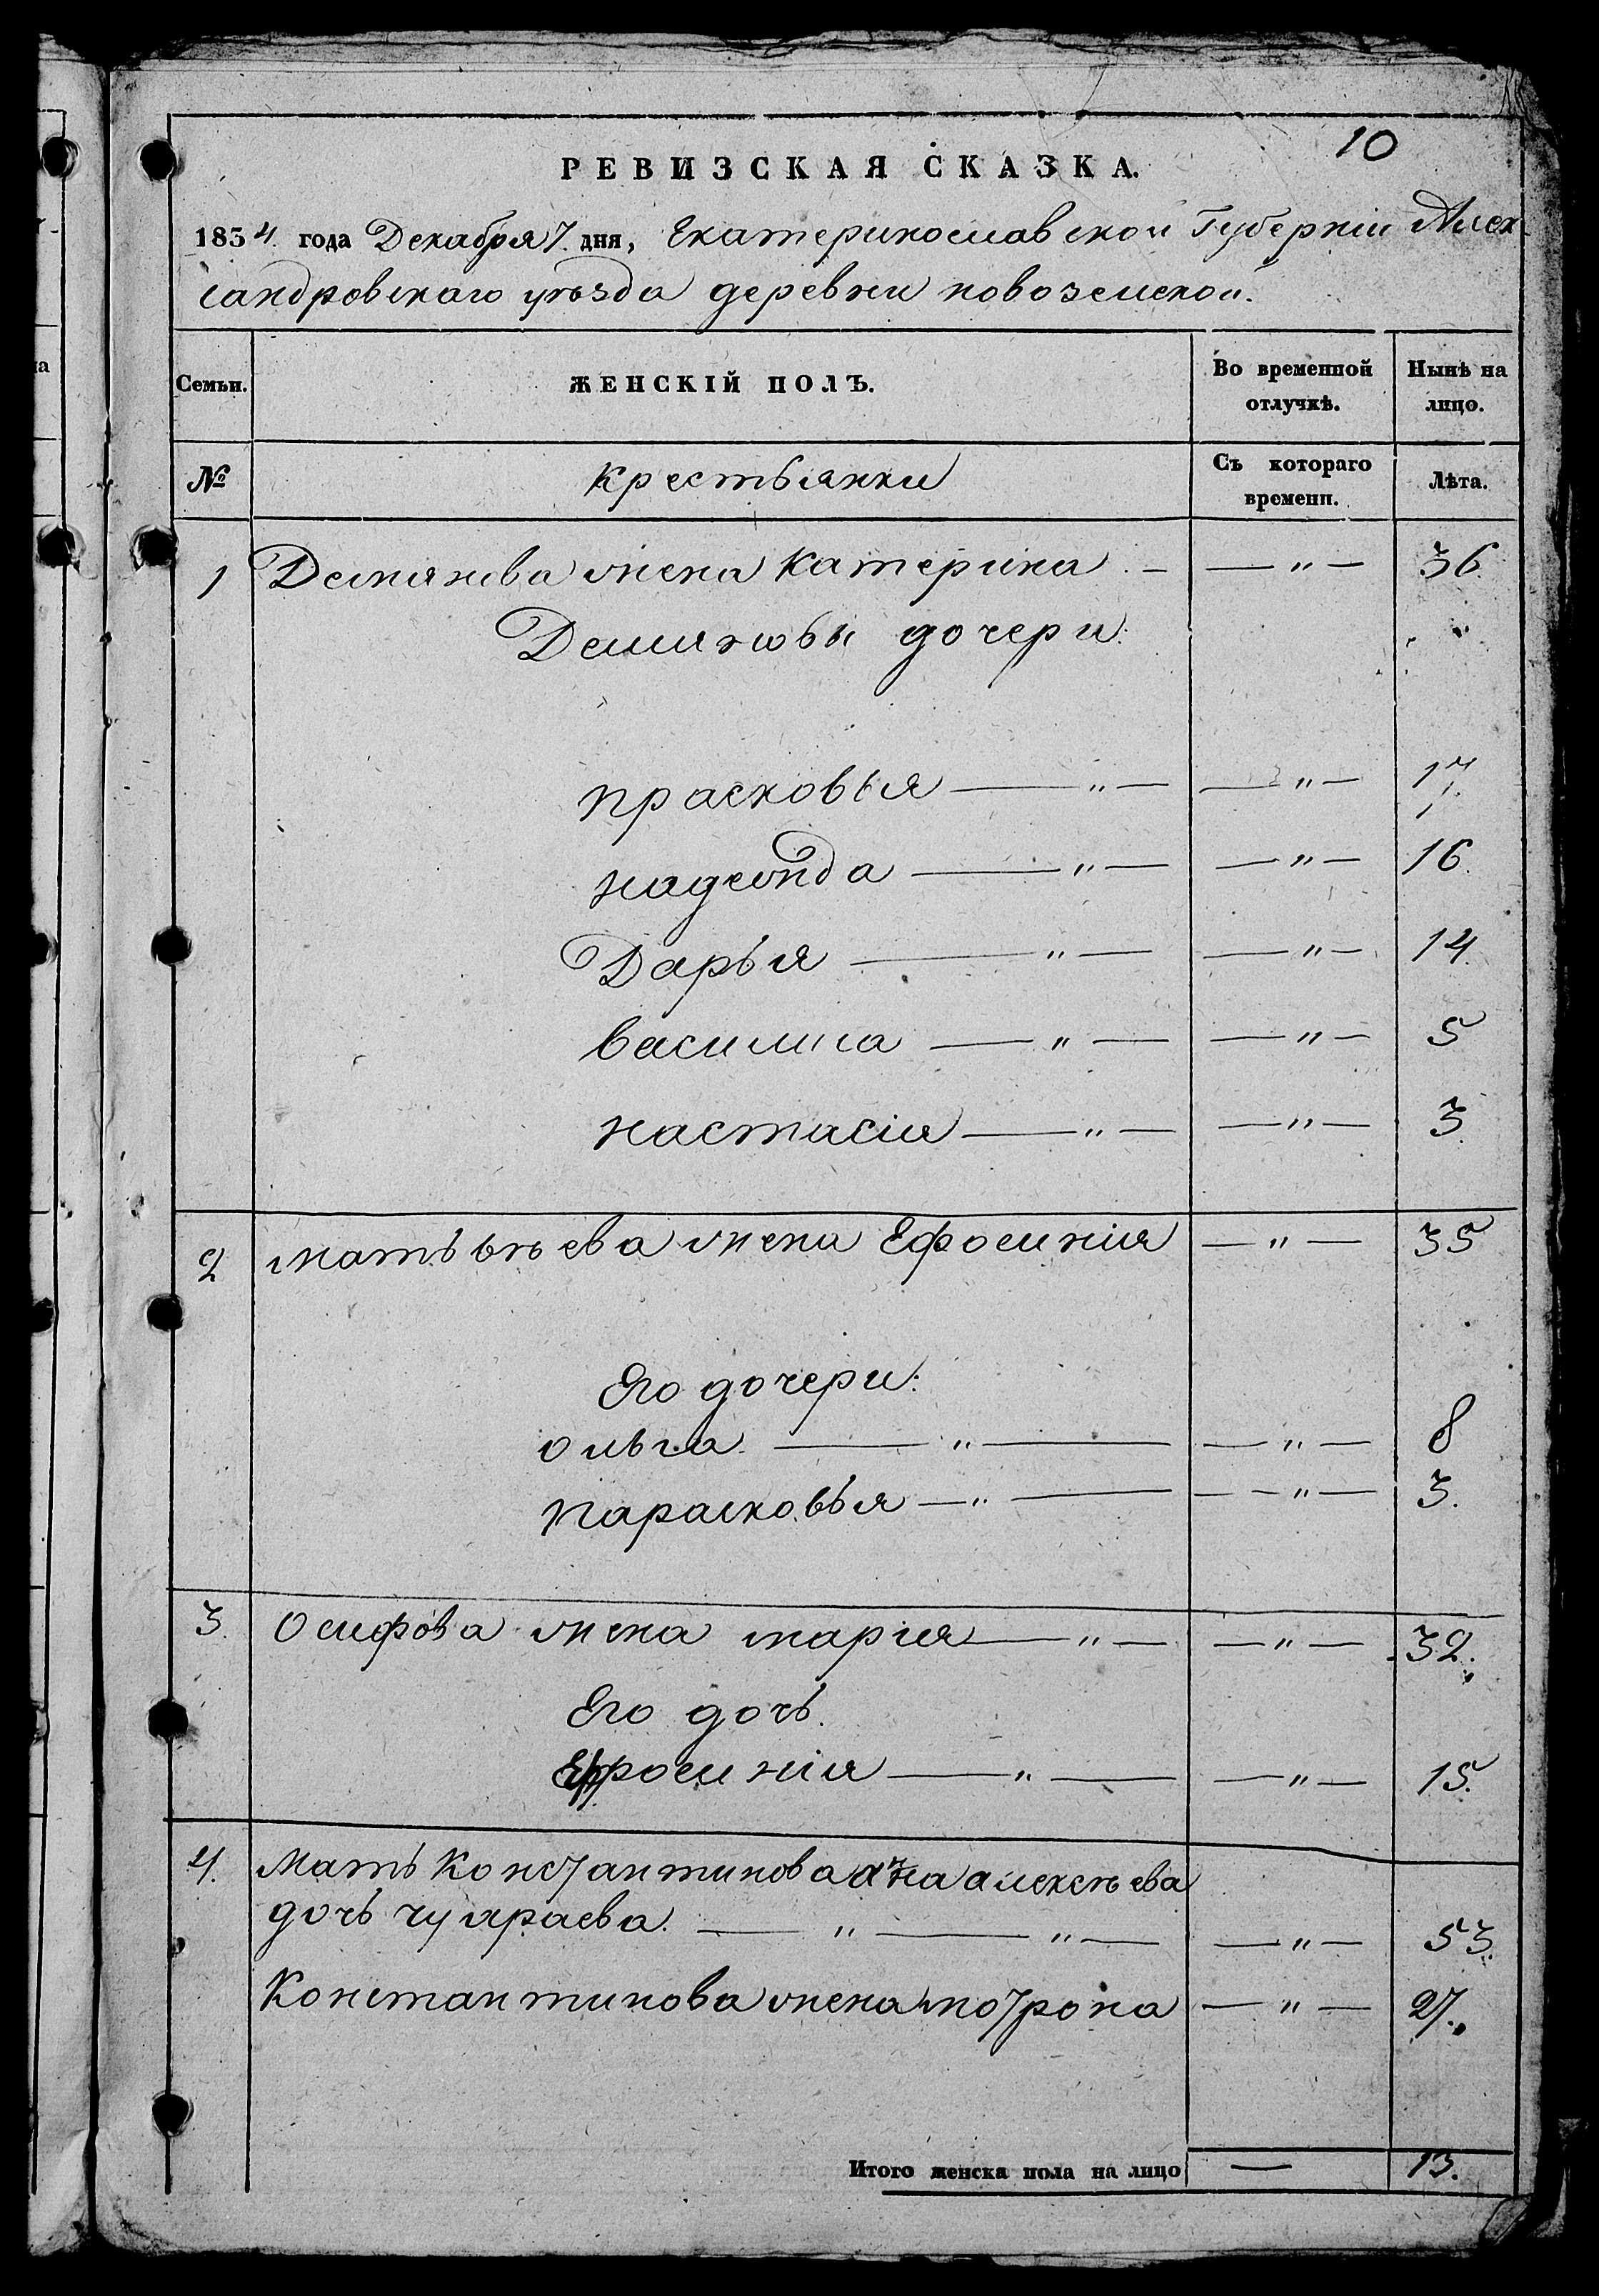 10
РЕВИЗСКАЯ СКАЗКА.
1854. года Декабря 7. дня, Екатеринославской Губерніи Алек
сандровскаго уѣзда деревни новоземской.
Семьи. ЖЕНСКІЙ ПОЛЪ. Во временной отлучкѣ. Нынѣ на лицо.
№ крестьянки Съ котораго времени. Лѣта.
1 Демянова жена Катерина . — — " — 36.
Демяновы дочери:
прасковья — " — — " — 17
надежда — " — — " — 16.
Дарья — " — — " — 14.
василиса — " — — " — 5
настасія — " — — " — 3.
2 матьвѣева жена Ефросинія — " — 35
Его дочери:
ольга. — " — — " — 8
парасковья — " — — — " — 3.
3. Осифова жена марія — " — — " — 32.
Его дочь.
Ефросинія — " — — " — 15.
4. Мать Константинова анна алексѣева
дочь — " — " — — " — 53.
Константинова жена матрона — " — 27.
Итого женска пола на лицо — 13.